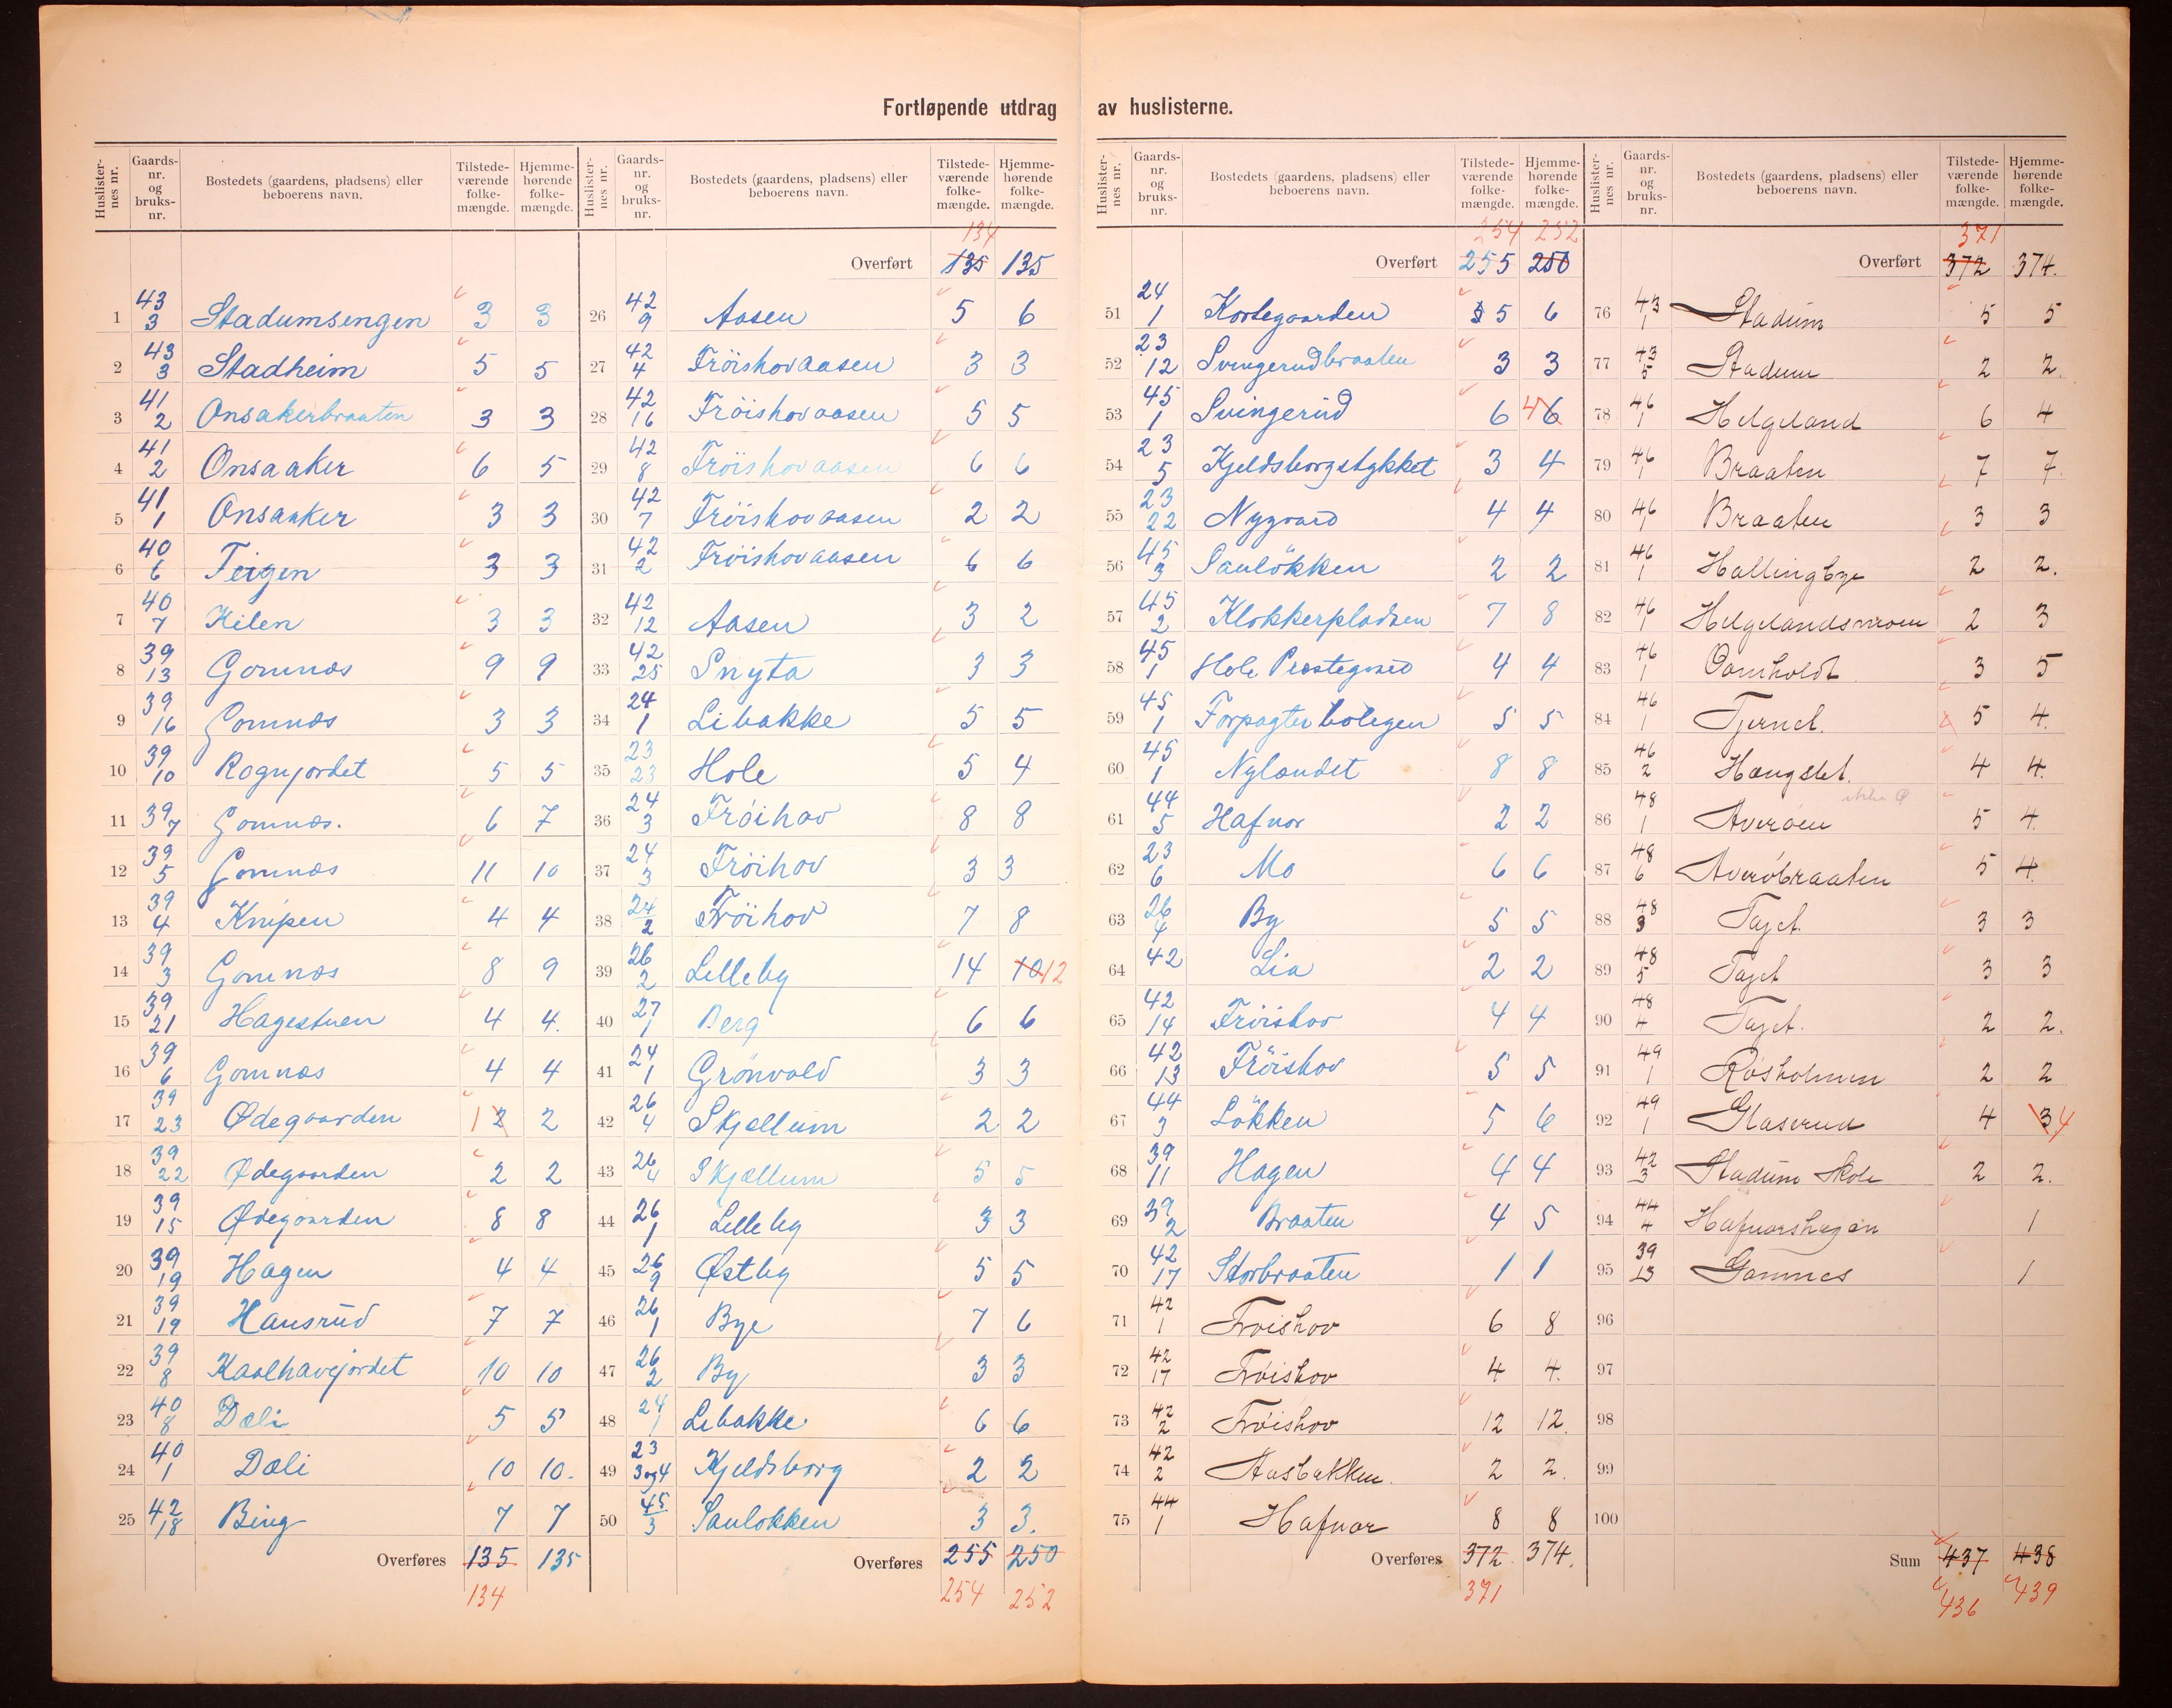 Fortløpende utdrag av huslisterne.
Huslister-nes nr. Gaards-nr. og bruks-nr. Bostedets (gaardens, pladsens) eller beboerens navn. Tilstede-værende folke-mængde. Hjemme-hørende folke-mængde.
1 43 3 Stadumsengen 3 3
2 43 3 Stadheim 5 5
3 41 2 Onsakerbraaten 3 3
4 41 2 Onsaaker 6 5
5 41 1 Onsaaker 3 3
6 40 6 Teigen 3 3
7 40 7 Kilen 3 3
8 39 13 Gomnæs 9 9
9 39 16 Gomnæs 3 3
10 39 10 Rognjordet 5 5
11 39 7 Gomnæs. 6 7
12 39 5 Gomnæs 11 10
13 39 4 Knipen 4 4
14 39 3 Gomnæs 8 9
15 39 21 Hagestuen 4 4.
16 39 6 Gomnæs 4 4
17 39 23 Ødegaarden 1 2 2
18 39 22 Ødegaarden 2 2
19 39 15 Ødegaarden 8 8
20 39 19 Hagen 4 4
21 39 19 Hansrud 7 7
22 39 8 Kaalhavejordet 10 10
23 40 8 Dæli 5 5
24 40 1 Dæli 10 10.
25 42 18 Bing 7 7
Overføres 135 135
134
Huslister-nes nr. Gaards-nr. og bruks-nr. Bostedets (gaardens, pladsens) eller beboerens navn. Tilstede-værende folke-mængde. Hjemme-hørende folke-mængde.
134
Overført 135 135
26 42 9 Aasen 5 6
27 42 4 Fröishovaasen 3 3
28 42 16 Fröishovaasen 5 5
29 42 8 Fröishovaasen 6 6
30 42 7 Fröishovaasen 2 2
31 42 2 Fröishovaasen 6 6
32 42 12 Aasen 3 2
33 42 25 Snyta 3 3
34 24 1 Libakke 5 5
35 23 23 Hole 5 4
36 24 3 Fröihov 8 8
37 24 3 Fröihov 3 3
38 24 2 Fröihov 7 8
39 26 2 Lilleby 14 10 12
40 27 1 Berg 6 6
41 24 1 Grönvold 3 3
42 26 4 Skjællum 2 2
43 26 4 Skjællum 5 5
44 26 1 Lilleby 3 3
45 26 9 Østby 5 5
46 26 1 Bye 7 6
47 26 2 By 3 3
48 24 1 Libakke 6 6
49 23 3og4 Kjeldsborg 2 2
50 45 3 Saulökken 3 3.
Overføres 255 250
254 252
Huslister-nes nr. Gaards-nr. og bruks-nr. Bostedets (gaardens, pladsens) eller beboerens navn. Tilstede-værende folke-mængde. Hjemme-hørende folke-mængde.
254 252
Overført 255 250
51 24 1 Kortegaarden 5 6
52 23 12 Svingerudbraaten 3 3
53 45 1 Svingerud 6 4 6
54 23 5 Kjeldsborgstykket 3 4
55 23 22 Nygaard 4 4
56 45 3 Saulökken 2 2
57 45 2 Klokkerpladsen 7 8
58 45 1 Hole Prestegaard 4 4
59 45 1 Forpagterboligen 5 5
60 45 1 Nylandet 8 8
61 44 5 Hafnor 2 2
62 23 6 Mo 6 6
63 26 4 By 5 5
64 42 Lia 2 2
65 42 14 Fröishov 4 4
66 42 13 Fröishov 5 5
67 44 3 Lökken 5 6
68 39 11 Hagen 4 4
69 39 2 Braaten 4 5
70 42 17 Storbraaten 1 1
71 42 1 Frøishov 6 8
72 42 17 Frøishov 4 4.
73 42 2 Frøishov 12 12.
74 42 2 Aasbakken. 2 2.
75 44 1 Hafnor 8 8
Overføres 372. 374.
371
Huslister-nes nr. Gaards-nr. og bruks-nr. Bostedets (gaardens, pladsens) eller beboerens navn. Tilstede-værende folke-mængde. Hjemme-hørende folke-mængde.
371
Overført 372 374.
76 43 1 Stadum 5 5
77 43 5 Stadum 2 2.
78 46 1 Helgeland 6 4
79 46 1 Braaten 7 7.
80 46 1 Braaten 3 3
81 46 1 Hallingbye 2 2.
82 46 1 Helgelandsmoen 2 3
83 46 1 3 5
84 46 1 Tjernet. 5 4.
85 46 2 Hængslet. 4 4.
86 48 1 Averøen 5 4.
87 48 6 Averøbraaten 5 4.
88 48 3 Tajet. 3 3
89 48 5 Tajet 3 3
90 48 4 Tajet. 2 2.
91 49 1 Røsholmen 2 2
92 49 1 Glaserud 4 3 4
93 42 3 Stadum Skole 2 2.
94 44 4 Hafnorshagen 1
95 39 13 Gomnes 1
96
97
98
99
100
Sum 437 438
436 439